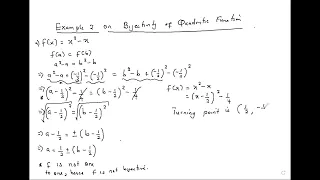 Example 2 on Bijectivity of Quadratic Function
a) f(x) = x² - x
f(a) = f(b)
a² - a = b² - b
⇒) a² - a + (-1/2)² - (-1/2)² = b² - b + (-1/2)² - (-1/2)²
⇒ (a - 1/2)² - 1/4 = (b - 1/2)² - 1/4
⇒ √(a - 1/2)² = √(b - 1/2)²
⇒) a - 1/2 = ± (b - 1/2)
⇒) a = 1/2 ± (b - 1/2)
∴ f is not one
to one, hence f is not bijective.
f(x) = x² - x
= (x - 1/2)² - 1/4
Turning point is (1/2, -